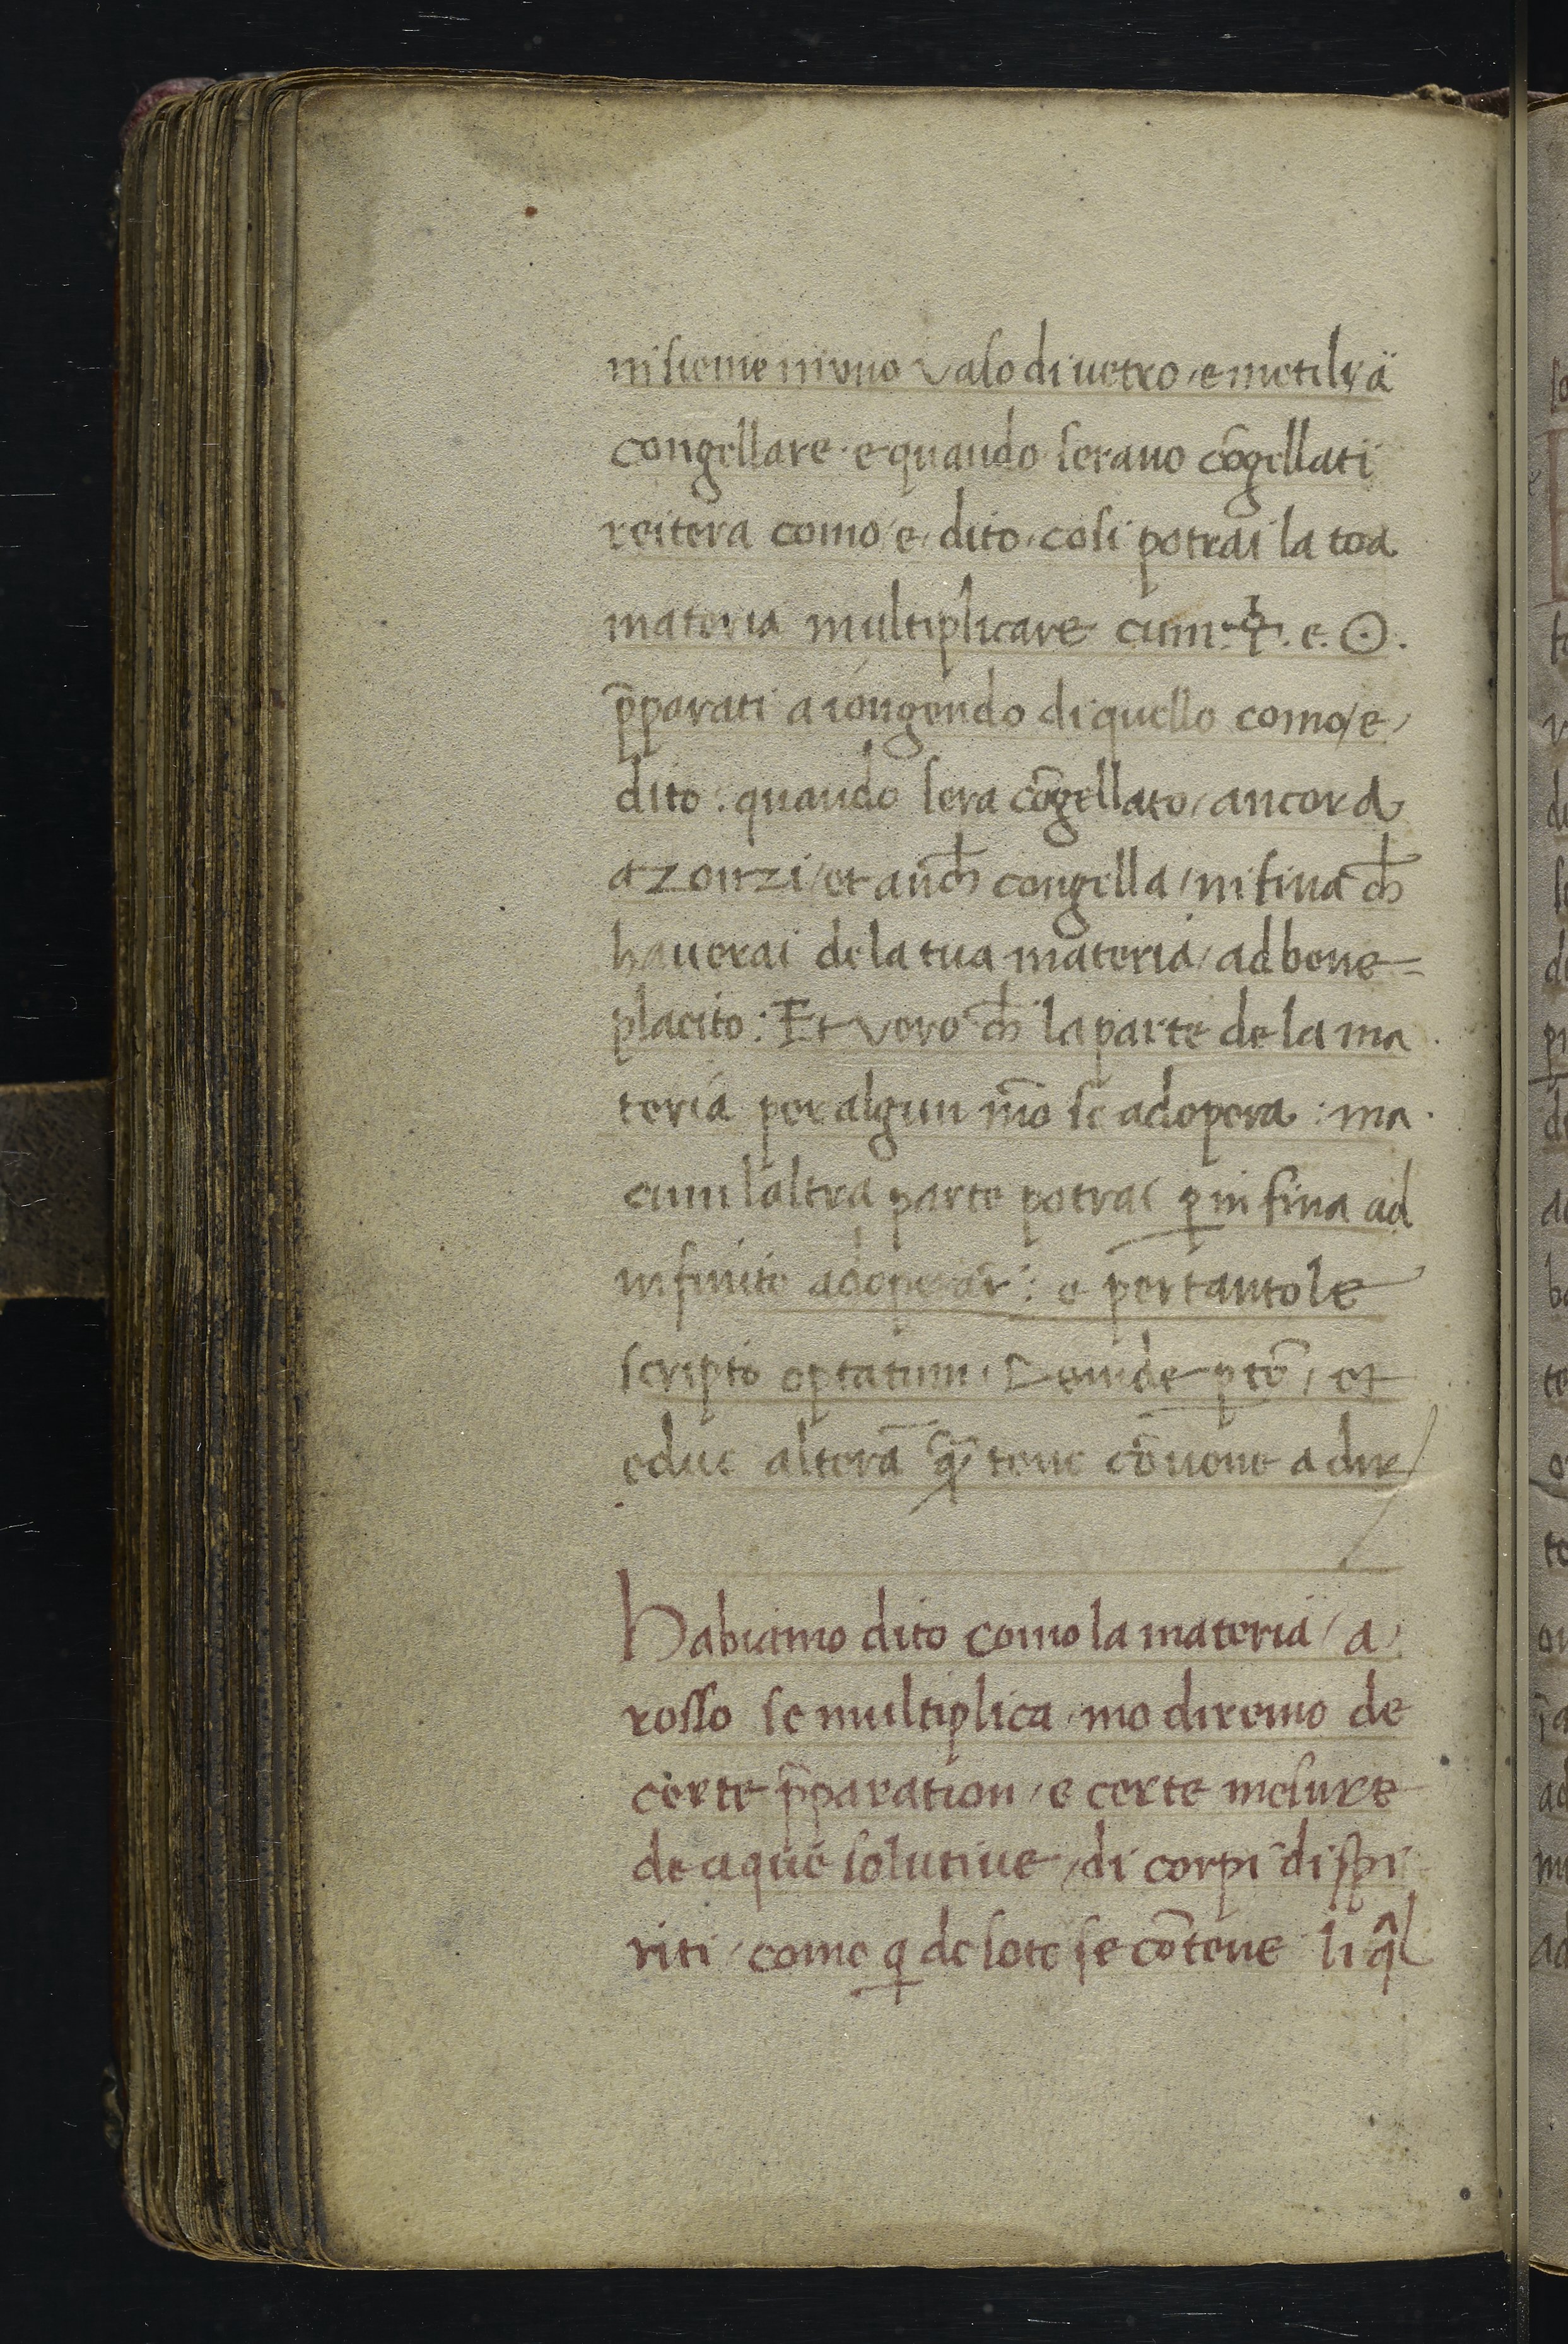 insieme in vno vaso di uetro, e metili a
congellare. e quando serano cōgellati
reitera como e, dito. cosi potrai la toa
materia multiplicare cum. ☿. e. ☉.
p̄parati a iongendo di quello como, e,
dito: quando sera cōgellato, ancora
azonzi, et anch̄ congella, infina ch̄
hauerai de la tua materia, ad bene=
placito: Et vero ch̄ la parte de la ma
teria per algun mō se adopera: ma
cum laltra parte potrai ꝑ infina ad
infinito adoperar: e per tanto le
scripto optatum. Deinde ptō, et
educ alterā tene cōuene a dir
Habiamo dito como la materia, a,
rosso se multiplica, mo diremo de
certe p̄paration, e certe mesure
de aque solutiue, di corpi di spi
riti, come ꝗ de soto se cōtene li q̄l